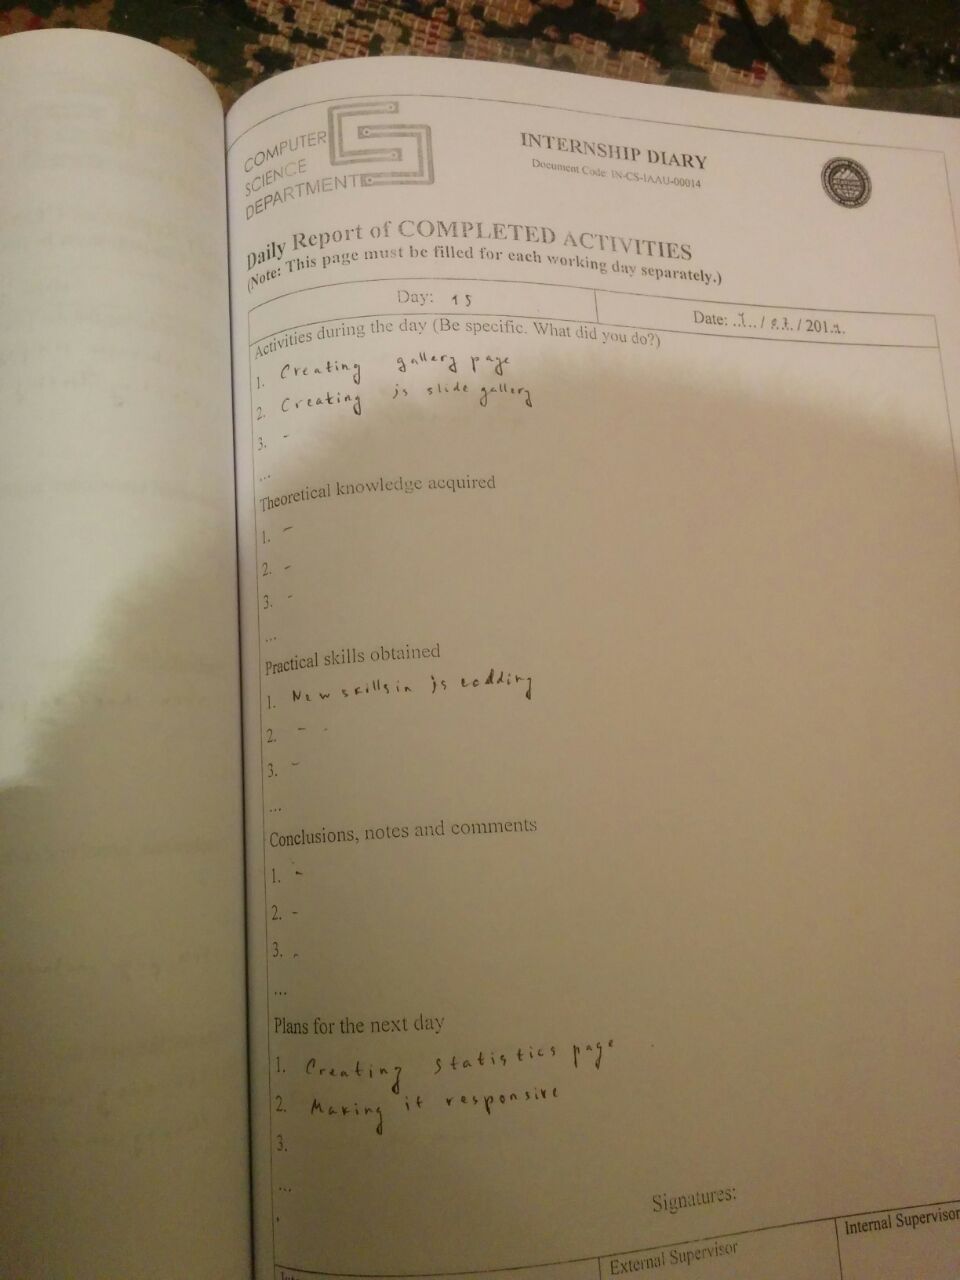 COMPUTER
SCIENCE
DEPARTMENT
INTERNSHIP DIARY
Document Code IN-CS-IAAU-00014
Daily Report of COMPLETED ACTIVITIES
(Note: This page must be filled for each working day separately.)
Day: 15
Date:
Activities during the day (Be specific. What did you do?)
1. Creating gallery page
2. Creating js slide gallery
3. -
...
Theoretical knowledge acquired
1. -
2. -
3. -
...
Practical skills obtained
1. New skills in js codding
2. -
3. -
...
Conclusions, notes and comments
1. -
2. -
3. -
...
Plans for the next day
1. Creating statistics page
2. Making it responsive
3.
...
Signatures:
External Supervisor
Internal Supervisor